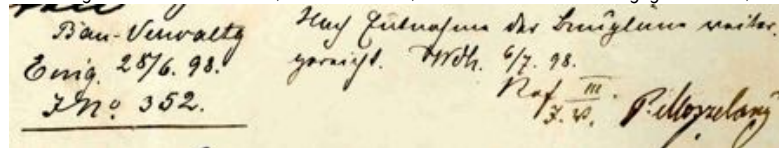 Bau-Verwaltg
Eing. 28/6. 98.
J. No. 352.
Nach Entnahme der Baupläne weiter-
gereicht. Wdh. 6/7. 98.
Ref. III.
J. V.